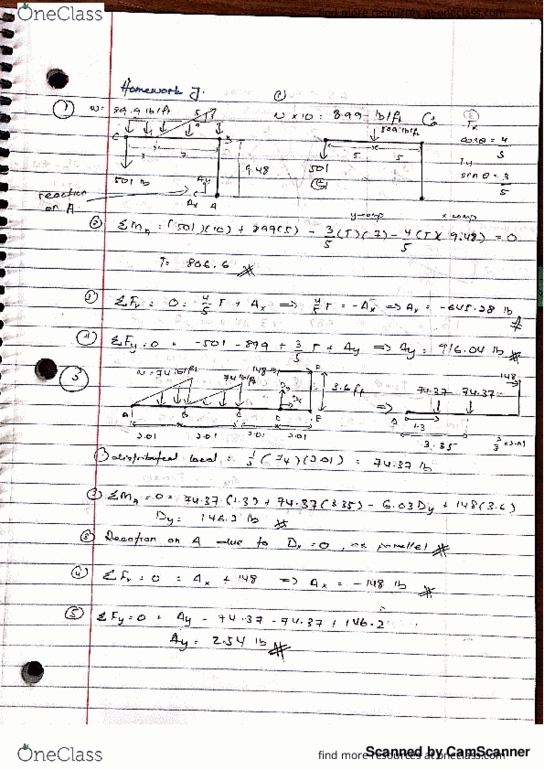 OneClass
find more resources at oneclass.com
Homework
①
①
w = 89.9 lb/ft
w × 10 = 899 lb/ft
899 lb/ft
Tx
cosθ = 4/5
Ty
sinθ = 3/5
C
B
5
5
501 lb
501
9.48
Ay
Ax
A
reaction
on A
y-comp
x comp
② ΣMA = (501)(10) + 899(5) - 3/5 (T)(7) - 4/5 (T)(9.48) = 0
T = 806.6
③ ΣFx = 0 = 4/5 T + Ax ⇒ 4/5 T = -Ax ⇒ Ax = -645.28 lb
④ ΣFy = 0 = -501 - 899 + 3/5 T + Ay ⇒ Ay = 916.04 lb
③
w = 74 lb/ft
74 lb/ft
148
3.6 ft
A
B
C
E
2.01
2.01
2.01
2.01
⇒
74.37
74.37
148
A
1.3
3.35
① distributed load = 1/2 (74)(2.01) = 74.37 lb
② ΣMA = 0 = 74.37(1.3) + 74.37(3.35) - 6.03Dy + 148(3.6)
Dy = 146.2 lb
③ Reaction on A due to Dx = 0, as parallel
④ ΣFx = 0 = Ax + 148 ⇒ Ax = -148 lb
⑤ ΣFy = 0 = Ay - 74.37 - 74.37 + 146.2
Ay = 2.54 lb
OneClass
find more resources at oneclass.com
Scanned by CamScanner